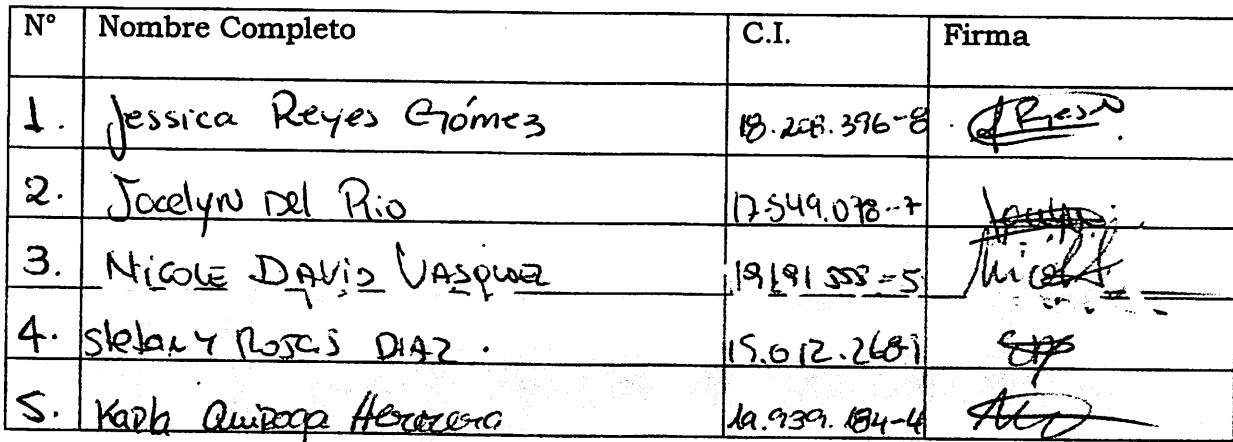 N° Nombre Completo C.I. Firma
1. Jessica Reyes Gómez 18.208.396-8
2. Jocelyn Del Rio 17.549.078-7
3. NICOLE DAVIS VASQUEZ 19.191.555-5
4. Stefany Rojas DIAZ. 15.012.268-1
5. Karla Quiroga Herrera 19.939.184-4